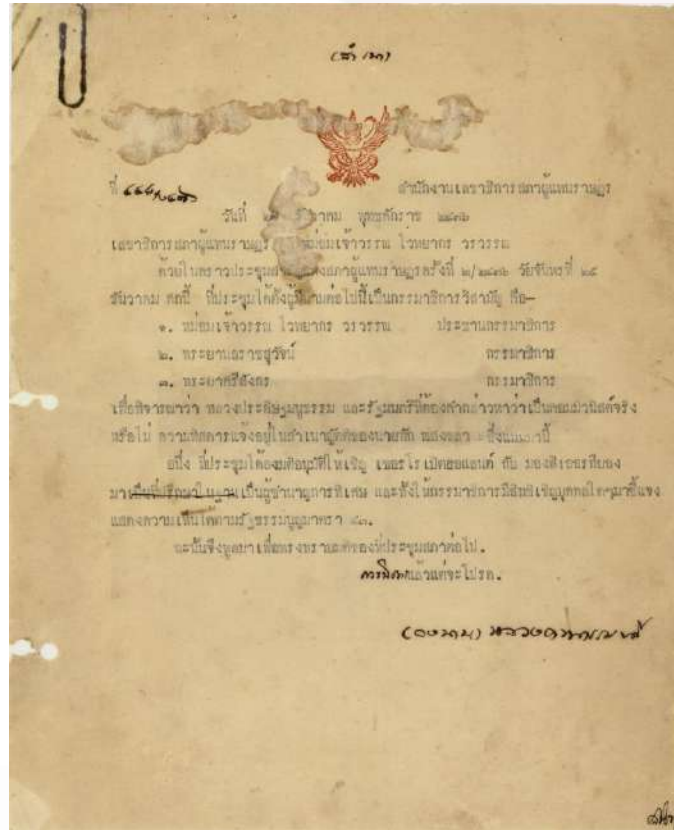 (สำเนา)
ที่ สำนักงานเลขาธิการสภาผู้แทนราษฎร
วันที่ ธันวาคม พุทธศักราช ๒๔๗๖
เลขาธิการสภาผู้แทนราษฎร หม่อมเจ้าวรรณ ไวทยากร วรวรรณ
ด้วยในคราวประชุม สภาผู้แทนราษฎรครั้งที่ ๒/๒๔๗๖ วันจันทร์ที่ ๒๕
ธันวาคม ศกนี้ ที่ประชุมได้ตั้งผู้มีนามต่อไปนี้เป็นกรรมาธิการวิสามัญ คือ-
๑. หม่อมเจ้าวรรณ ไวทยากร วรวรรณ ประธานกรรมาธิการ
๒. พระยานลราชสุวัจน์ กรรมาธิการ
๓. พระยาศรีสังกร กรรมาธิการ
เพื่อพิจารณาว่า หลวงประดิษฐมนูธรรม และรัฐมนตรีที่ต้องคำกล่าวหาว่าเป็นคอมมิวนิสต์จริง
หรือไม่ ความพิสดารแจ้งอยู่ในสำเนาญัตติของนายดัก ซึ่งแนบมานี้
อนึ่ง ที่ประชุมได้ลงมติอนุมัติให้เชิญ เซอรโรเบิตฮอลแลนด์ กับ มองสิเออร
มาเป็นที่ปรึกษาในฐานเป็นผู้ชำนาญการพิเศษ และทั้งให้กรรมาธิการมีสิทธิเชิญบุคคลใดๆมาชี้แจง
แสดงความเห็นได้ตามรัฐธรรมนูญมาตรา ๔๓.
ฉะนั้นจึงทูลมาเพื่อทรงทราบมติของที่ประชุมสภาต่อไป.
ควรมิควรแล้วแต่จะโปรด.
(ลงนาม)